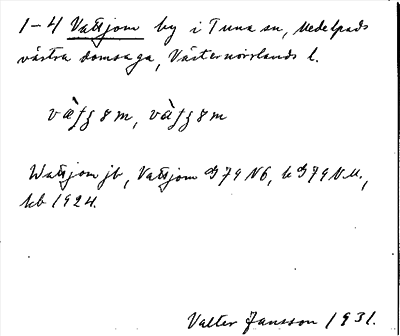 1–4 Vattjom by i Tuna sn, Medelpads
västra domsaga, Västernorrlands l.
Wattjom jb, Vattjom G 79 N6, k G 79 N.V.,
kb 1924.
Valter Jansson 1931.